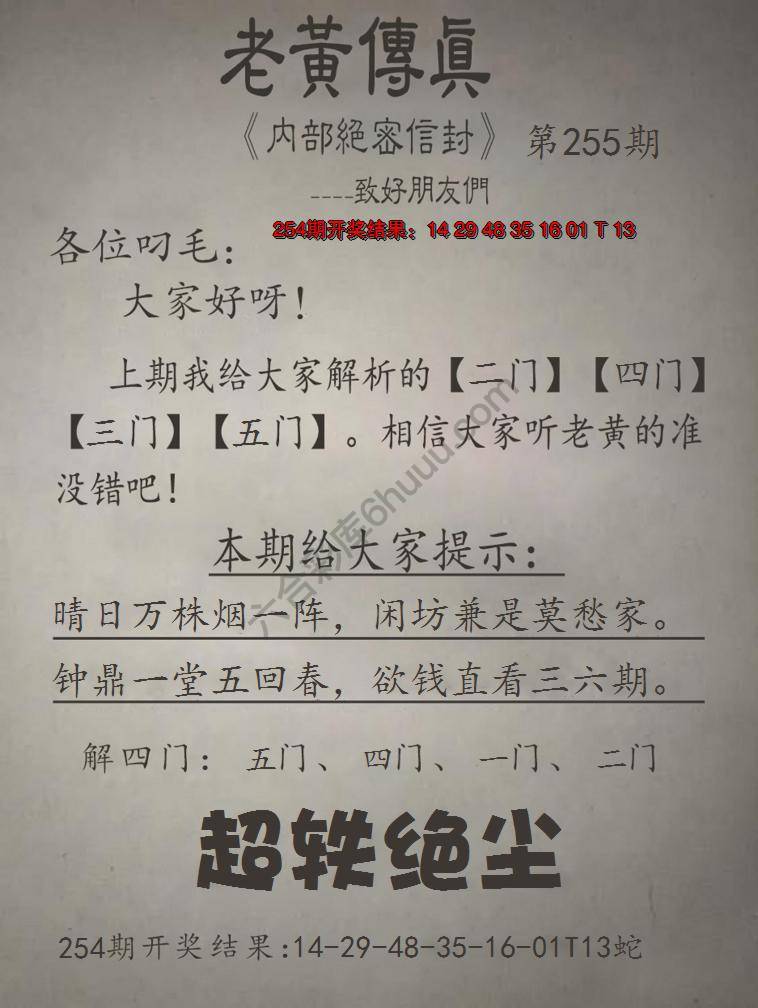 老黃傳眞
《內部絕密信封》 第255期
----致好朋友們
254期开奖结果：14 29 48 35 16 01 T 13
各位叼毛：
大家好呀！
上期我给大家解析的【二门】【四门】
【三门】【五门】。相信大家听老黄的准
没错吧！
本期给大家提示：
晴日万株烟一阵，闲坊兼是莫愁家。
钟鼎一堂五回春，欲钱直看三六期。
解四门： 五门、 四门、 一门、 二门
超轶绝尘
254期开奖结果:14-29-48-35-16-01T13蛇
六合彩库6huuu.com